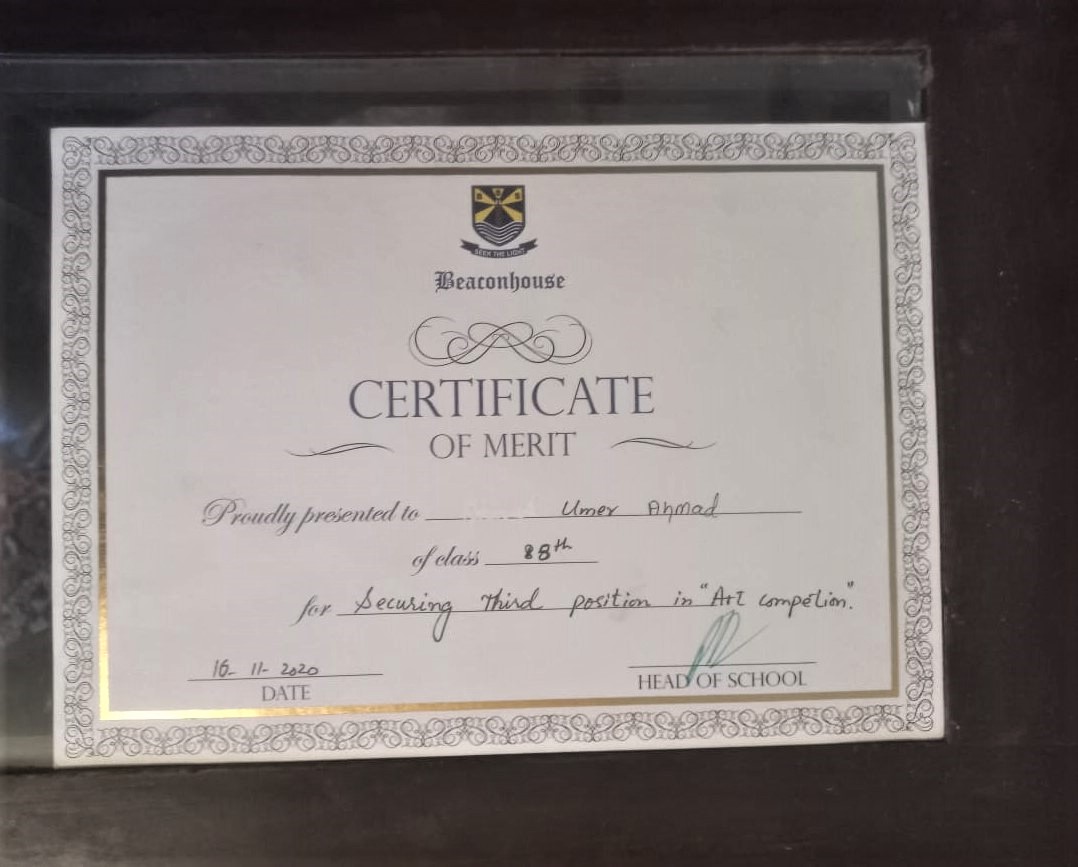 SEEK THE LIGHT
Beaconhouse
CERTIFICATE
OF MERIT
Proudly presented to Umer Ahmad
of class 88th
for Securing Third position in "Art compétion."
16- 11- 2020
DATE
HEAD OF SCHOOL